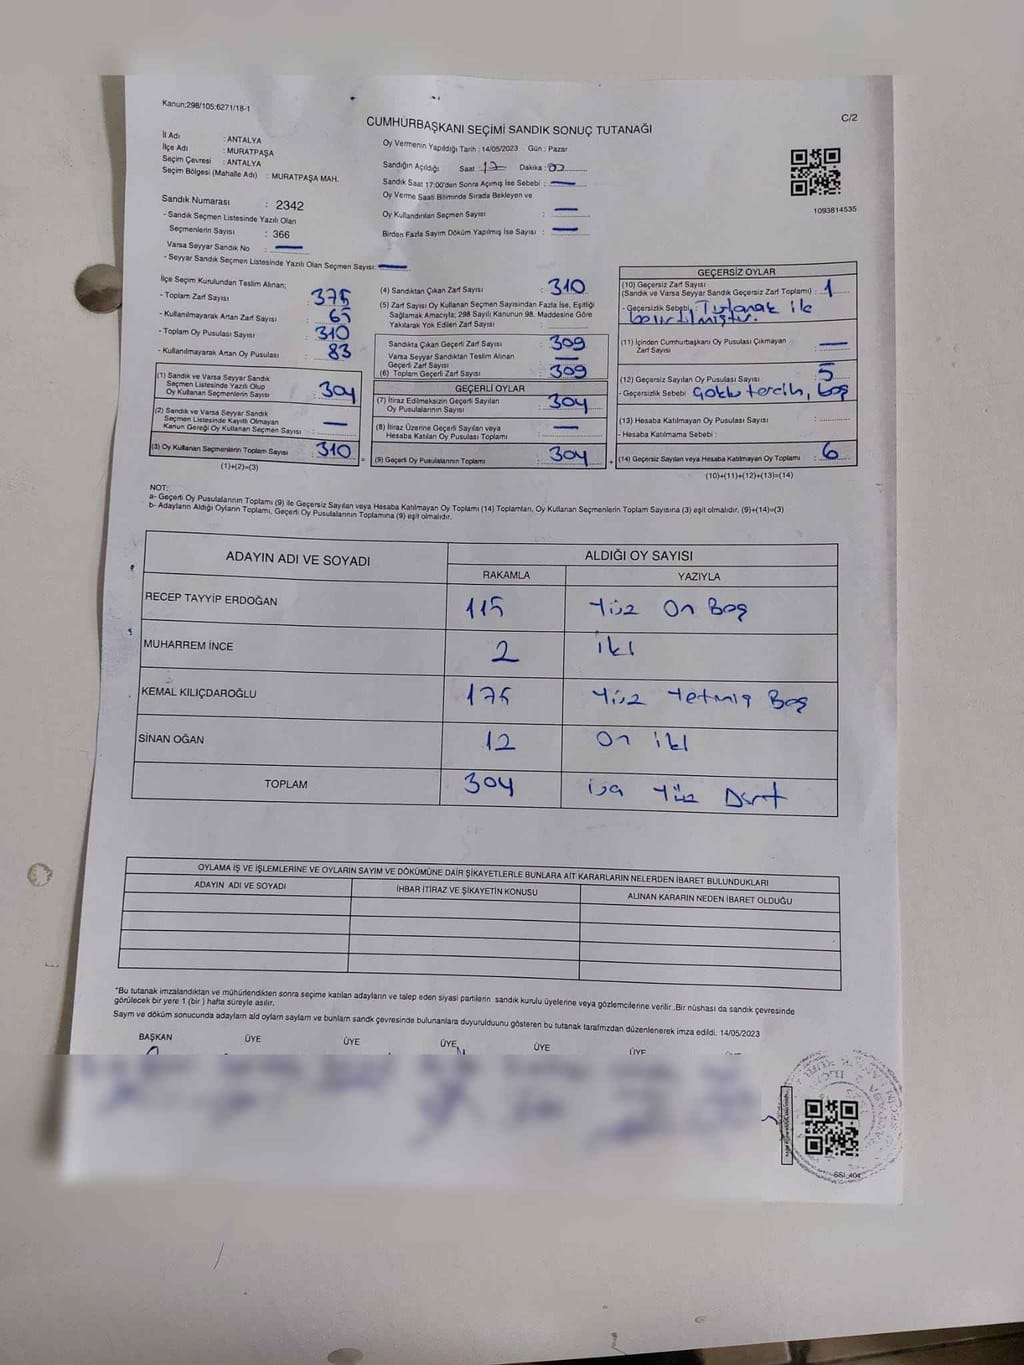 Kanun;298/105;6271/18-1
C/2
CUMHURBAŞKANI SEÇİMİ SANDIK SONUÇ TUTANAĞI
İl Adı : ANTALYA
İlçe Adı : MURATPAŞA
Seçim Çevresi : ANTALYA
Seçim Bölgesi (Mahalle Adı) : MURATPAŞA MAH.
Oy Vermenin Yapıldığı Tarih : 14/05/2023 Gün : Pazar
Sandığın Açıldığı Saat : 17 Dakika : 00
Sandık Saat 17:00'den Sonra Açımış İse Sebebi : —
Oy Verme Saati Bitiminde Sırada Bekleyen ve
Oy Kullandırılan Seçmen Sayısı : —
Birden Fazla Sayım Döküm Yapılmış İse Sayısı : —
1093814535
Sandık Numarası : 2342
- Sandık Seçmen Listesinde Yazılı Olan
Seçmenlerin Sayısı : 366
Varsa Seyyar Sandık No : —
- Seyyar Sandık Seçmen Listesinde Yazılı Olan Seçmen Sayısı: —
İlçe Seçim Kurulundan Teslim Alınan;
- Toplam Zarf Sayısı : 375
- Kullanılmayarak Artan Zarf Sayısı : 65
- Toplam Oy Pusulası Sayısı : 310
- Kullanılmayarak Artan Oy Pusulası : 83
(1) Sandık ve Varsa Seyyar Sandık
Seçmen Listesinde Yazılı Olup
Oy Kullanan Seçmenlerin Sayısı : 304
(2) Sandık ve Varsa Seyyar Sandık
Seçmen Listesinde Kayıtlı Olmayan
Kanun Gereği Oy Kullanan Seçmen Sayısı : —
(3) Oy Kullanan Seçmenlerin Toplam Sayısı : 310
(1)+(2)=(3)
(4) Sandıktan Çıkan Zarf Sayısı : 310
(5) Zarf Sayısı Oy Kullanan Seçmen Sayısından Fazla İse, Eşitliği
Sağlamak Amacıyla; 298 Sayılı Kanunun 98. Maddesine Göre
Yakılarak Yok Edilen Zarf Sayısı :
Sandıkta Çıkan Geçerli Zarf Sayısı : 309
Varsa Seyyar Sandıktan Teslim Alınan
Geçerli Zarf Sayısı : —
(6) Toplam Geçerli Zarf Sayısı : 309
GEÇERLİ OYLAR
(7) İtiraz Edilmeksizin Geçerli Sayılan
Oy Pusulalarının Sayısı : 304
(8) İtiraz Üzerine Geçerli Sayılan veya
Hesaba Katılan Oy Pusulası Toplamı : —
(9) Geçerli Oy Pusulalarının Toplamı : 304
GEÇERSİZ OYLAR
(10) Geçersiz Zarf Sayısı
(Sandık ve Varsa Seyyar Sandık Geçersiz Zarf Toplamı) : 1
- Geçersizlik Sebebi : Tutanak ile
belirtilmiştir.
(11) İçinden Cumhurbaşkanı Oy Pusulası Çıkmayan
Zarf Sayısı : —
(12) Geçersiz Sayılan Oy Pusulası Sayısı : 5
- Geçersizlik Sebebi Çoklu tercih, boş
(13) Hesaba Katılmayan Oy Pusulası Sayısı :
- Hesaba Katılmama Sebebi :
(14) Geçersiz Sayılan veya Hesaba Katılmayan Oy Toplamı : 6
(10)+(11)+(12)+(13)=(14)
NOT:
a- Geçerli Oy Pusulalarının Toplamı (9) ile Geçersiz Sayılan veya Hesaba Katılmayan Oy Toplamı (14) Toplamları, Oy Kullanan Seçmenlerin Toplam Sayısına (3) eşit olmalıdır. (9)+(14)=(3)
b- Adayların Aldığı Oyların Toplamı, Geçerli Oy Pusulalarının Toplamına (9) eşit olmalıdır.
ADAYIN ADI VE SOYADI ALDIĞI OY SAYISI
RAKAMLA YAZIYLA
RECEP TAYYİP ERDOĞAN 115 Yüz On Beş
MUHARREM İNCE 2 iki
KEMAL KILIÇDAROĞLU 175 Yüz Yetmiş Beş
SİNAN OĞAN 12 On iki
TOPLAM 304 Üç Yüz Dört
OYLAMA İŞ VE İŞLEMLERİNE VE OYLARIN SAYIM VE DÖKÜMÜNE DAİR ŞİKAYETLERLE BUNLARA AİT KARARLARIN NELERDEN İBARET BULUNDUKLARI
ADAYIN ADI VE SOYADI İHBAR İTİRAZ VE ŞİKAYETİN KONUSU ALINAN KARARIN NEDEN İBARET OLDUĞU
"Bu tutanak imzalandıktan ve mühürlendikten sonra seçime katılan adayların ve talep eden siyasi partilerin sandık kurulu üyelerine veya gözlemcilerine verilir .Bir nüshası da sandık çevresinde
görülecek bir yere 1 (bir ) hafta süreyle asılır.
Sayım ve döküm sonucunda adayların ald oylam saylam ve bunlam sandk çevresinde bulunanlara duyurulduunu gösteren bu tutanak tarafmzdan düzenlenerek imza edildi. 14/05/2023
BAŞKAN ÜYE ÜYE ÜYE ÜYE ÜYE